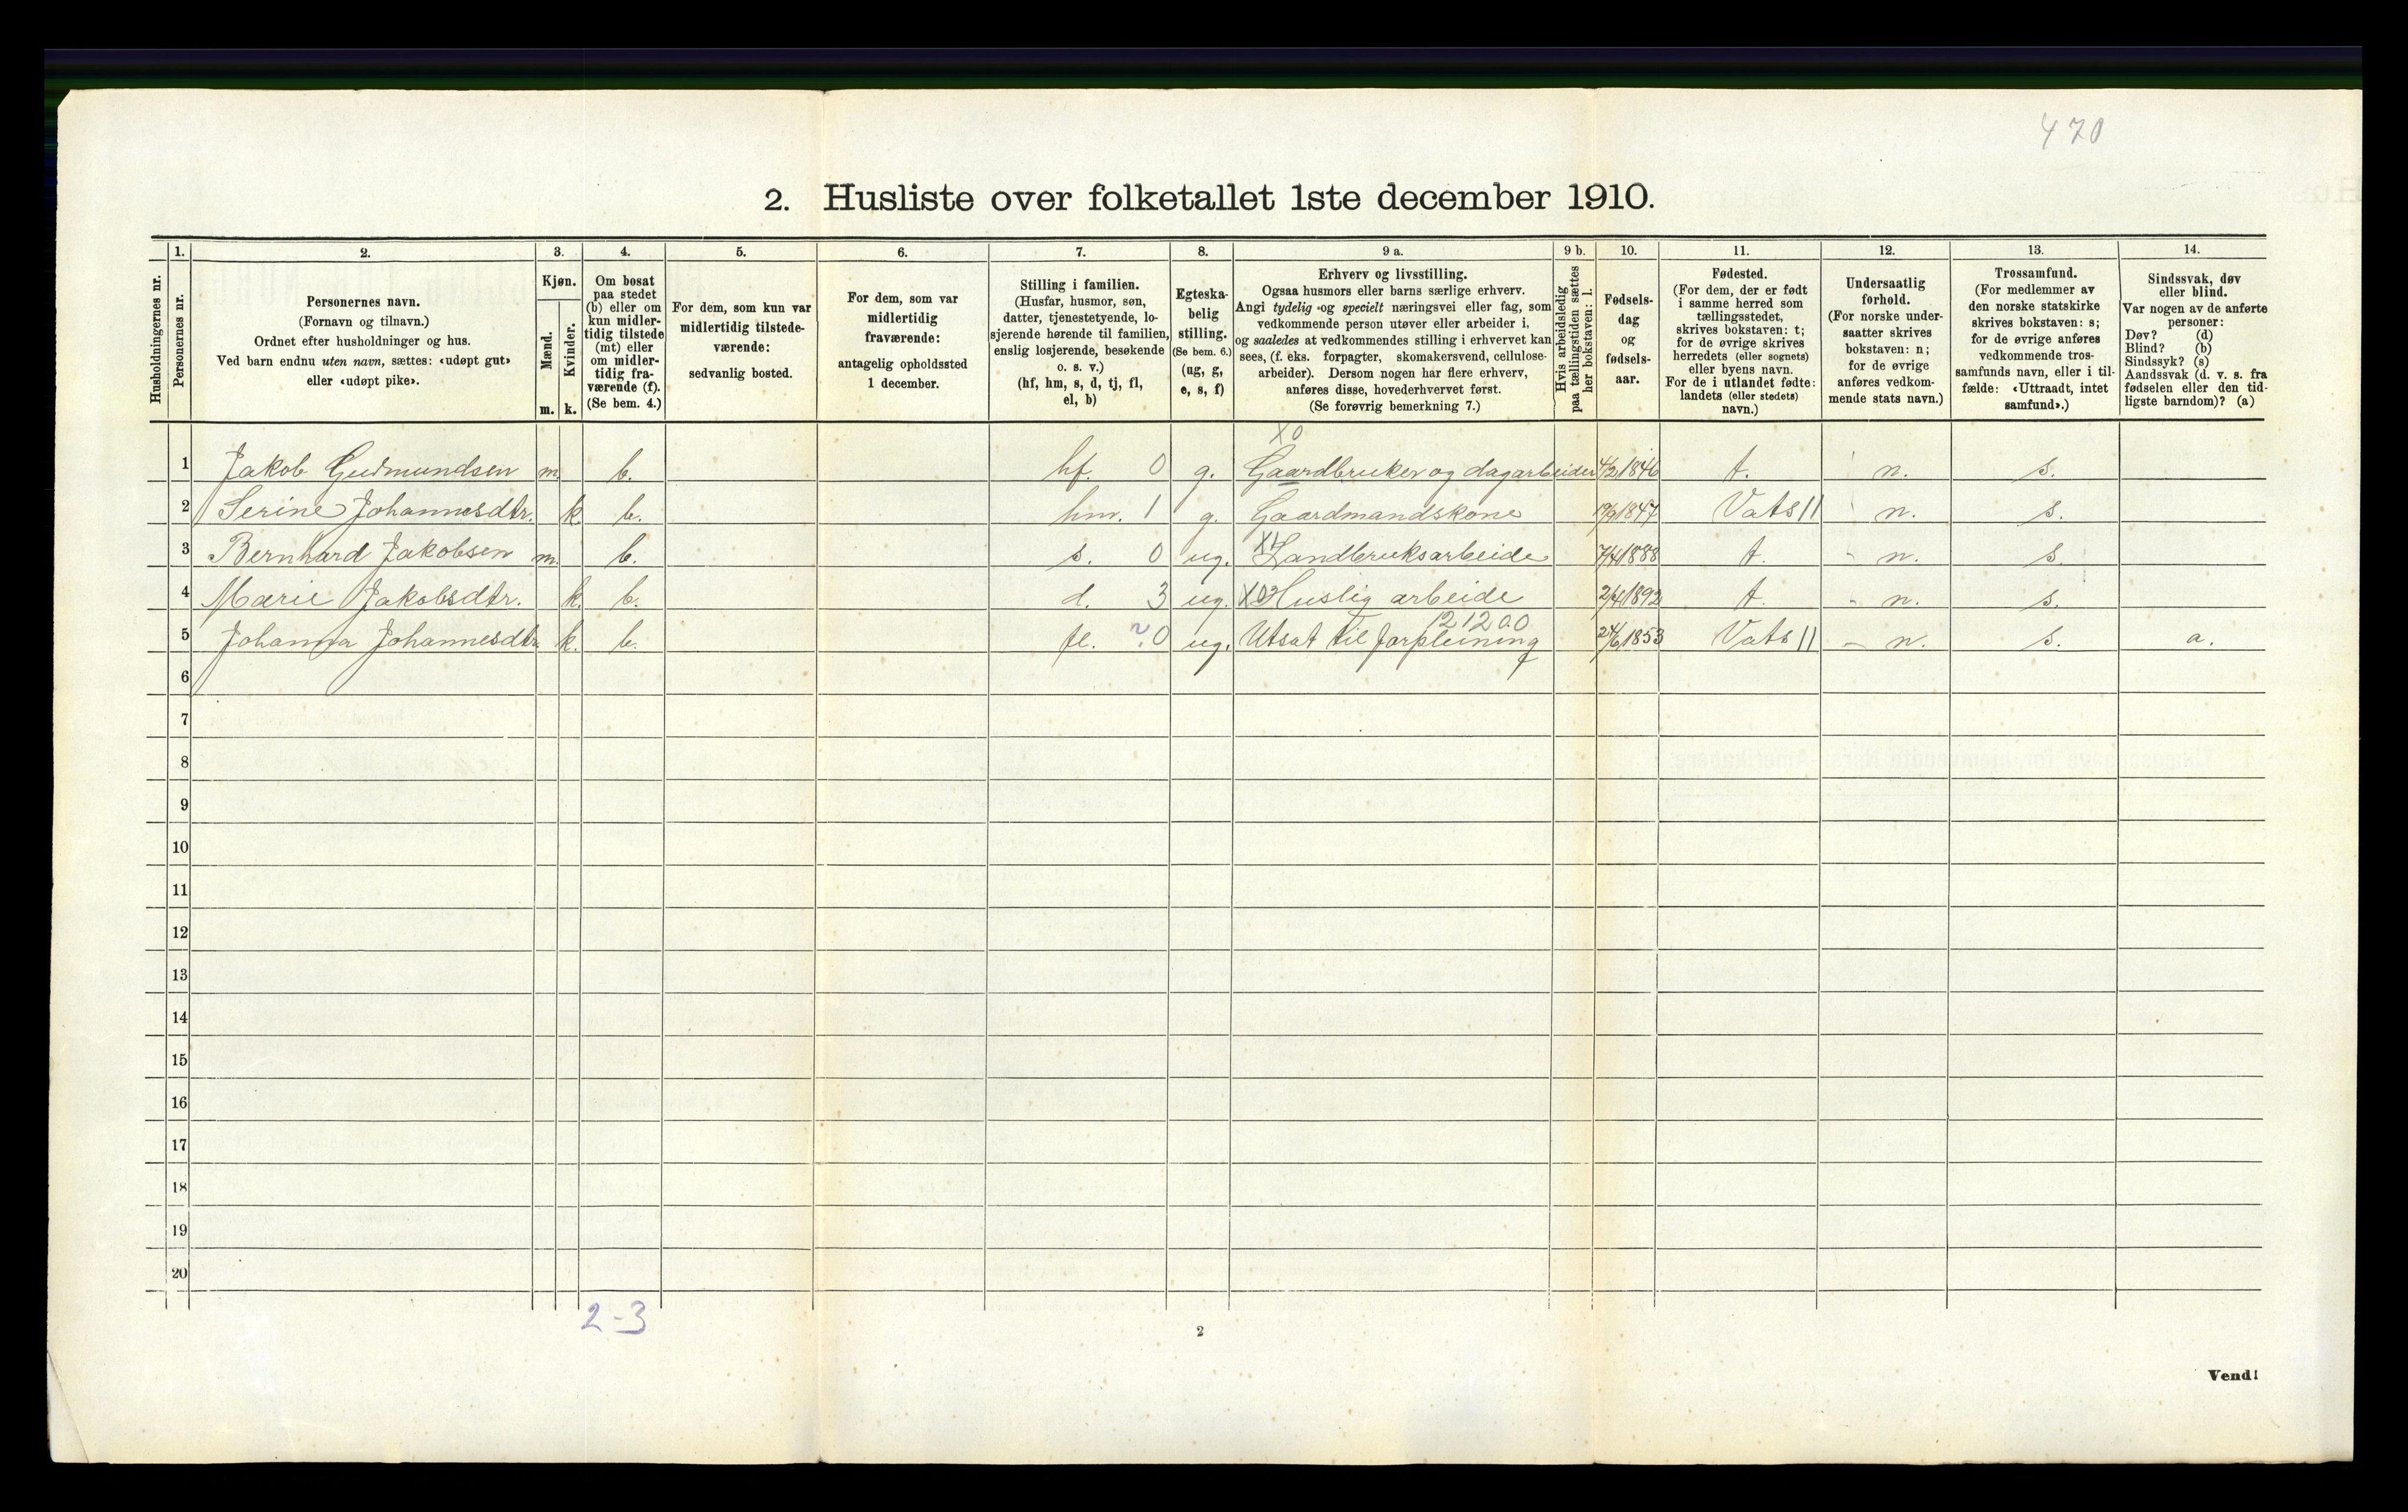 470
2. Husliste over folketallet 1ste december 1910.
Husholdningernes nr.
1. Personernes nr.
2. Personernes navn. (Fornavn og tilnavn.) Ordnet efter husholdninger og hus. Ved barn endnu uten navn, sættes: «udøpt gut» eller «udøpt pike».
3. Kjøn. Mænd. m. Kvinder. k.
4. Om bosat paa stedet (b) eller om kun midlertidig tilstede (mt) eller om midlertidig fraværende (f). (Se bem. 4.)
5. For dem, som kun var midlertidig tilstedeværende: sedvanlig bosted.
6. For dem, som var midlertidig fraværende: antagelig opholdssted 1 december.
7. Stilling i familien. (Husfar, husmor, søn, datter, tjenestetyende, losjerende hørende til familien, enslig losjerende, besøkende o. s. v.) (hf, hm, s, d, tj, fl, el, b)
8. Egteskabelig stilling. (Se bem. 6.) (ug, g, e, s, f)
9 a. Erhverv og livsstilling. Ogsaa husmors eller barns særlige erhverv. Angi tydelig og specielt næringsvei eller fag, som vedkommende person utøver eller arbeider i, og saaledes at vedkommendes stilling i erhvervet kan sees, (f. eks. forpagter, skomakersvend, cellulosearbeider). Dersom nogen har flere erhverv, anføres disse, hovederhvervet først. (Se forøvrig bemerkning 7.)
9 b. Hvis arbeidsledig paa tællingstiden sættes her bokstaven: l.
10. Fødselsdag og fødselsaar.
11. Fødested. (For dem, der er født i samme herred som tællingsstedet, skrives bokstaven: t; for de øvrige skrives herredets (eller sognets) eller byens navn. For de i utlandet fødte: landets (eller stedets) navn.)
12. Undersaatlig forhold. (For norske undersaatter skrives bokstaven: n; for de øvrige anføres vedkommende stats navn.)
13. Trossamfund. (For medlemmer av den norske statskirke skrives bokstaven: s; for de øvrige anføres vedkommende trossamfunds navn, eller i tilfælde: «Uttraadt, intet samfund».)
14. Sindssvak, døv eller blind. Var nogen av de anførte personer: Døv? (d) Blind? (b) Sindssyk? (s) Aandssvak (d. v. s. fra fødselen eller den tidligste barndom)? (a)
X0
1 Jakob Gudmundsen m. b. hf. 0 g. Gaardbruker og dagarbeider 4/2 1846 t. n. s.
2 Serine Johannesdtr. k. b. hm. 1 g. Gaardmandskone 19/9 1847 Vats 11 n. s.
3 Bernhard Jakobsen m. b. s. 0 ug. Landbruksarbeide 7/4 1888 t. - n. s.
4 Marie Jakobsdtr. k. b. d. 3 ug. X0 Huslig arbeide 2/4 1892 t. - n. s.
121200
5 Johanna Johannesdtr. k. b. fl. ? 0 ug. Utsat til forpleining 24/6 1853 Vats 11 - n. s. a.
6
7
8
9
10
11
12
13
14
15
16
17
18
19
20
2-3
2
Vend!